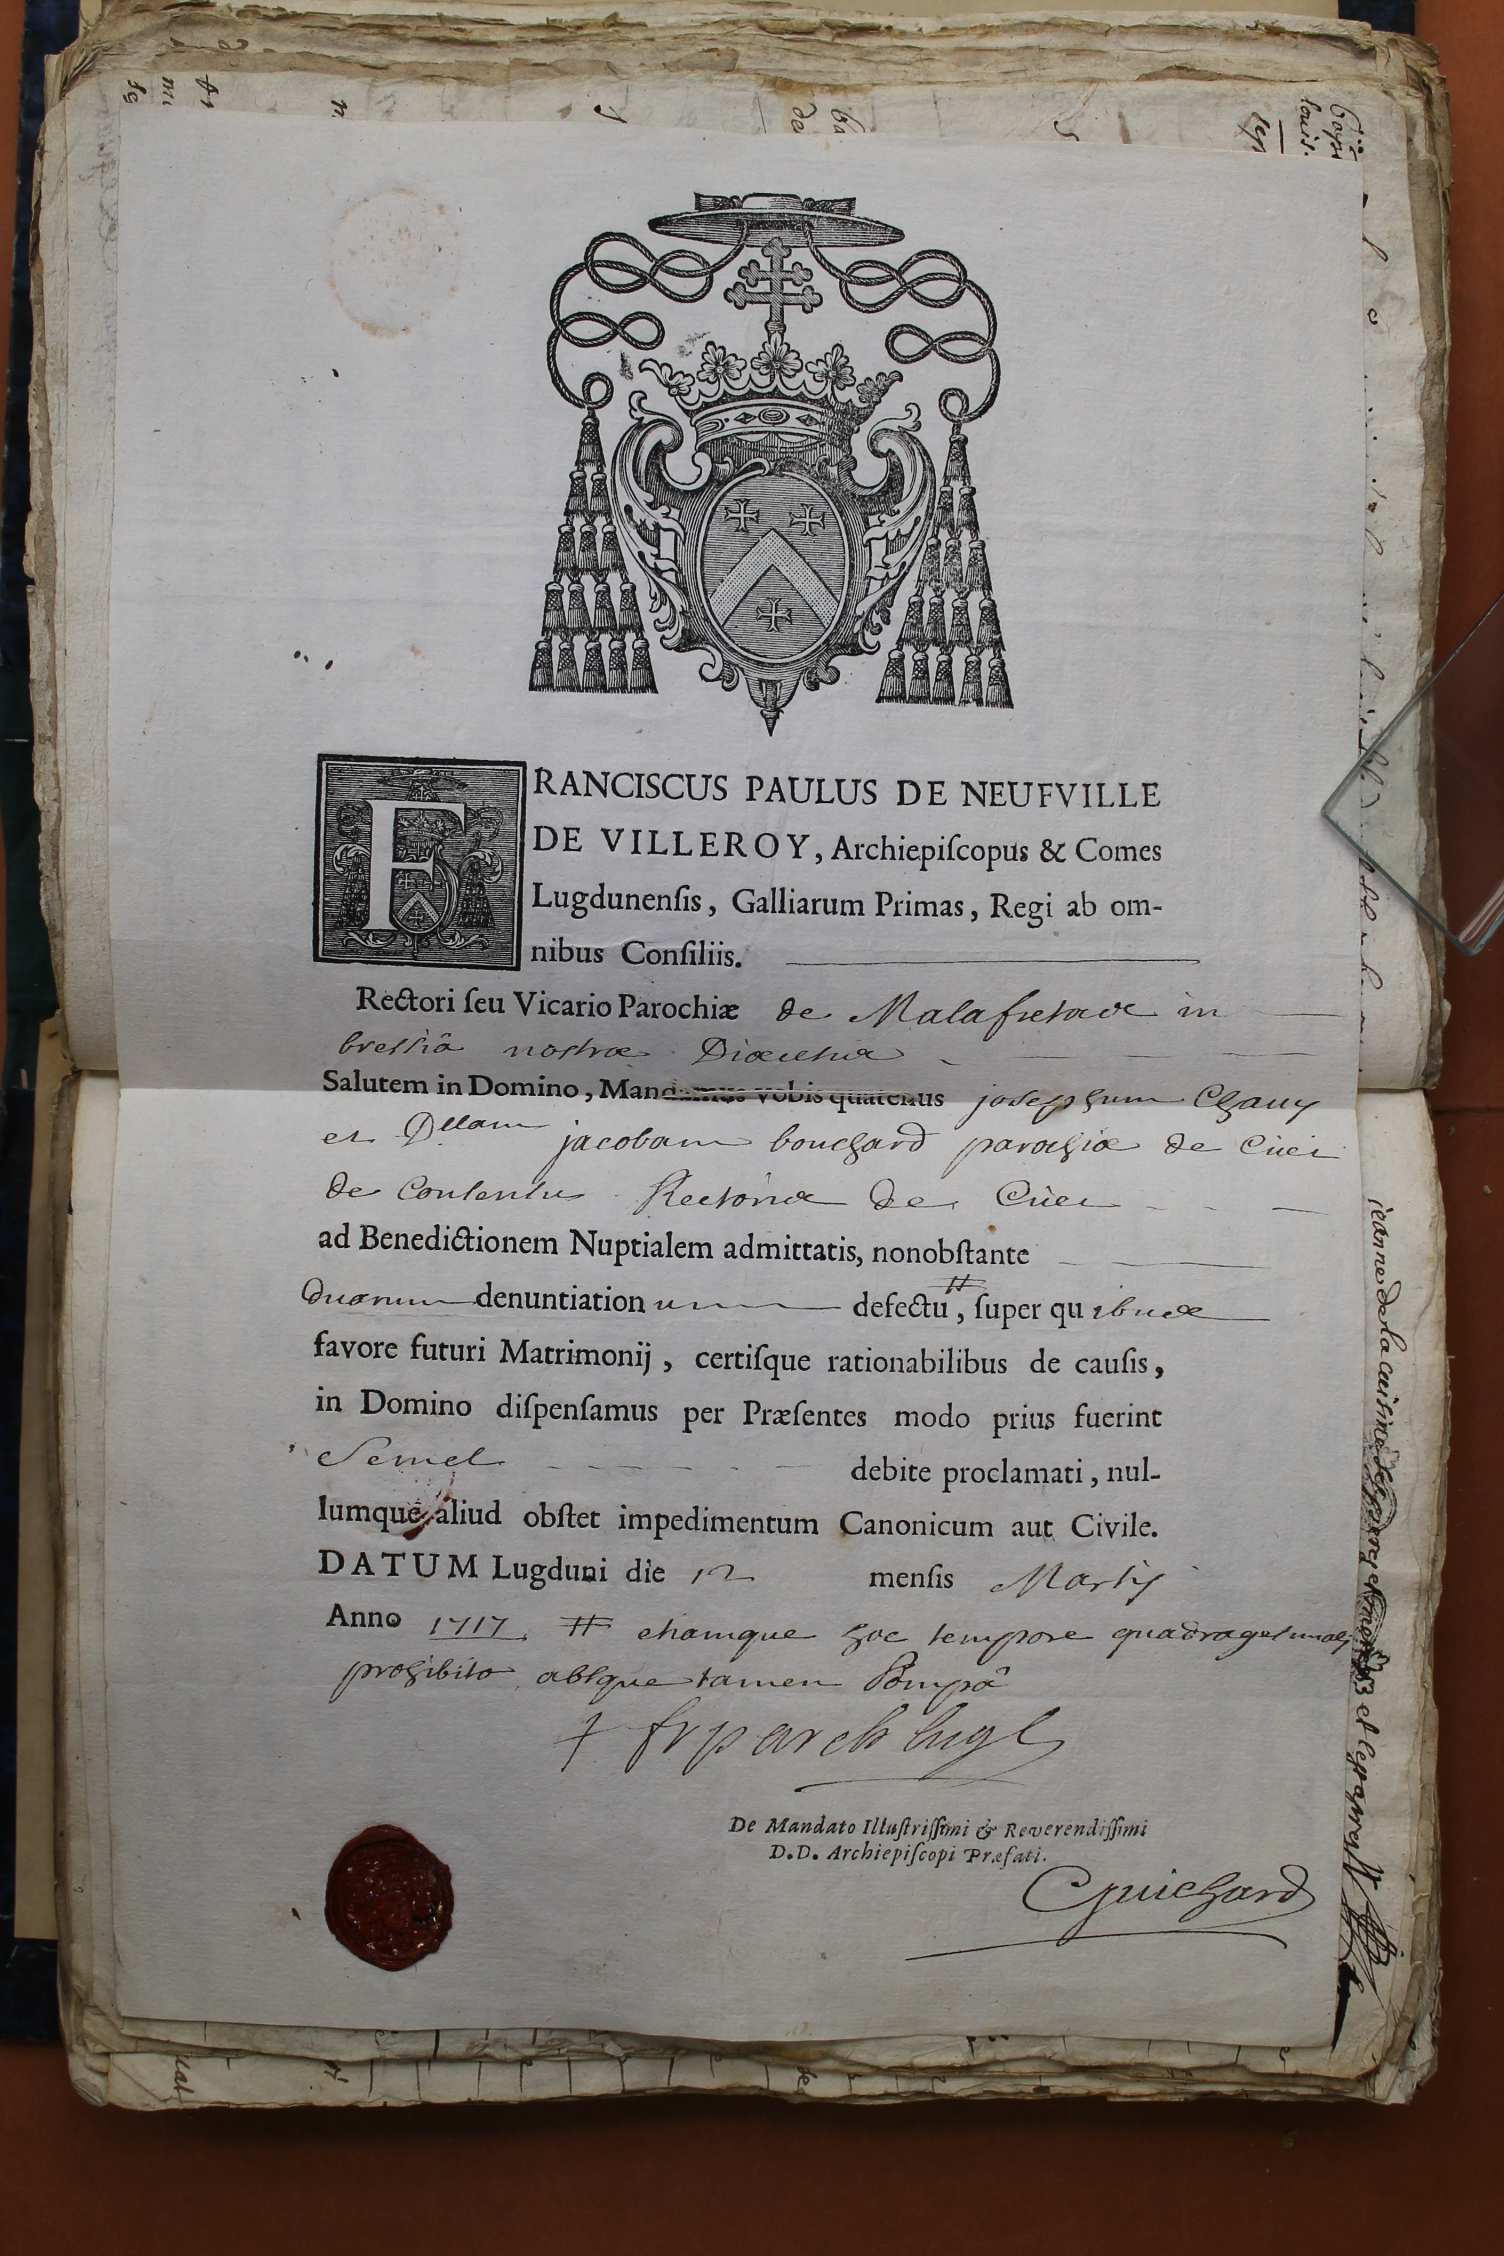 FRANCISCUS PAULUS DE NEUFVILLE
DE VILLEROY, Archiepiſcopus & Comes
Lugdunenſis, Galliarum Primas, Regi ab om-
nibus Conſiliis.
Rectori ſeu Vicario Parochiæ de Malafretaz in
bressiâ nostræ Diœcesis
Salutem in Domino, Mandamus vobis quatenus josephum Chauy
et Dllam jacobam bouchard parochiæ de Cuet
de Consensu Rectoris de Cuet
ad Benedictionem Nuptialem admittatis, nonobſtante
Duarum denuntiationum defectu #, ſuper quibus
favore futuri Matrimonij, certiſque rationabilibus de cauſis,
in Domino diſpenſamus per Præſentes modo prius fuerint
Semel debite proclamati, nul-
lumque aliud obſtet impedimentum Canonicum aut Civile.
DATUM Lugduni die 12 menſis Martij
Anno 1717. # etiamque hoc tempore quadragesimali
prohibito absque tamen Pompâ
+ fr p arch lugd
De Mandato Illuſtriſſimi & Reverendiſſimi
D.D. Archiepiſcopi Præfati.
Guichard